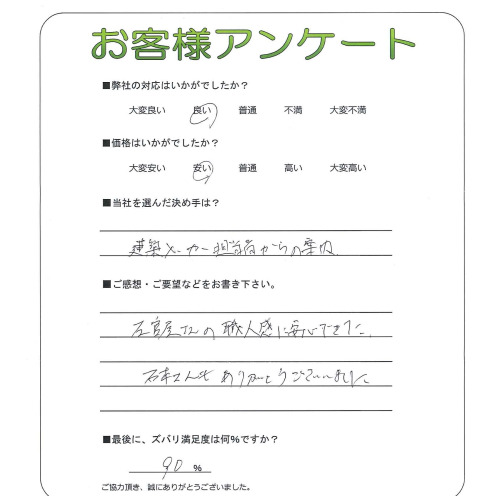 お客様アンケート
■弊社の対応はいかがでしたか？
大変良い 良い 普通 不満 大変不満
■価格はいかがでしたか？
大変安い 安い 普通 高い 大変高い
■当社を選んだ決め手は？
建築メーカー担当者からの案内
■ご感想・ご要望などをお書き下さい。
の職人感に安心できた。
ありがとうございました
■最後に、ズバリ満足度は何%ですか？
90 %
ご協力頂き、誠にありがとうございました。